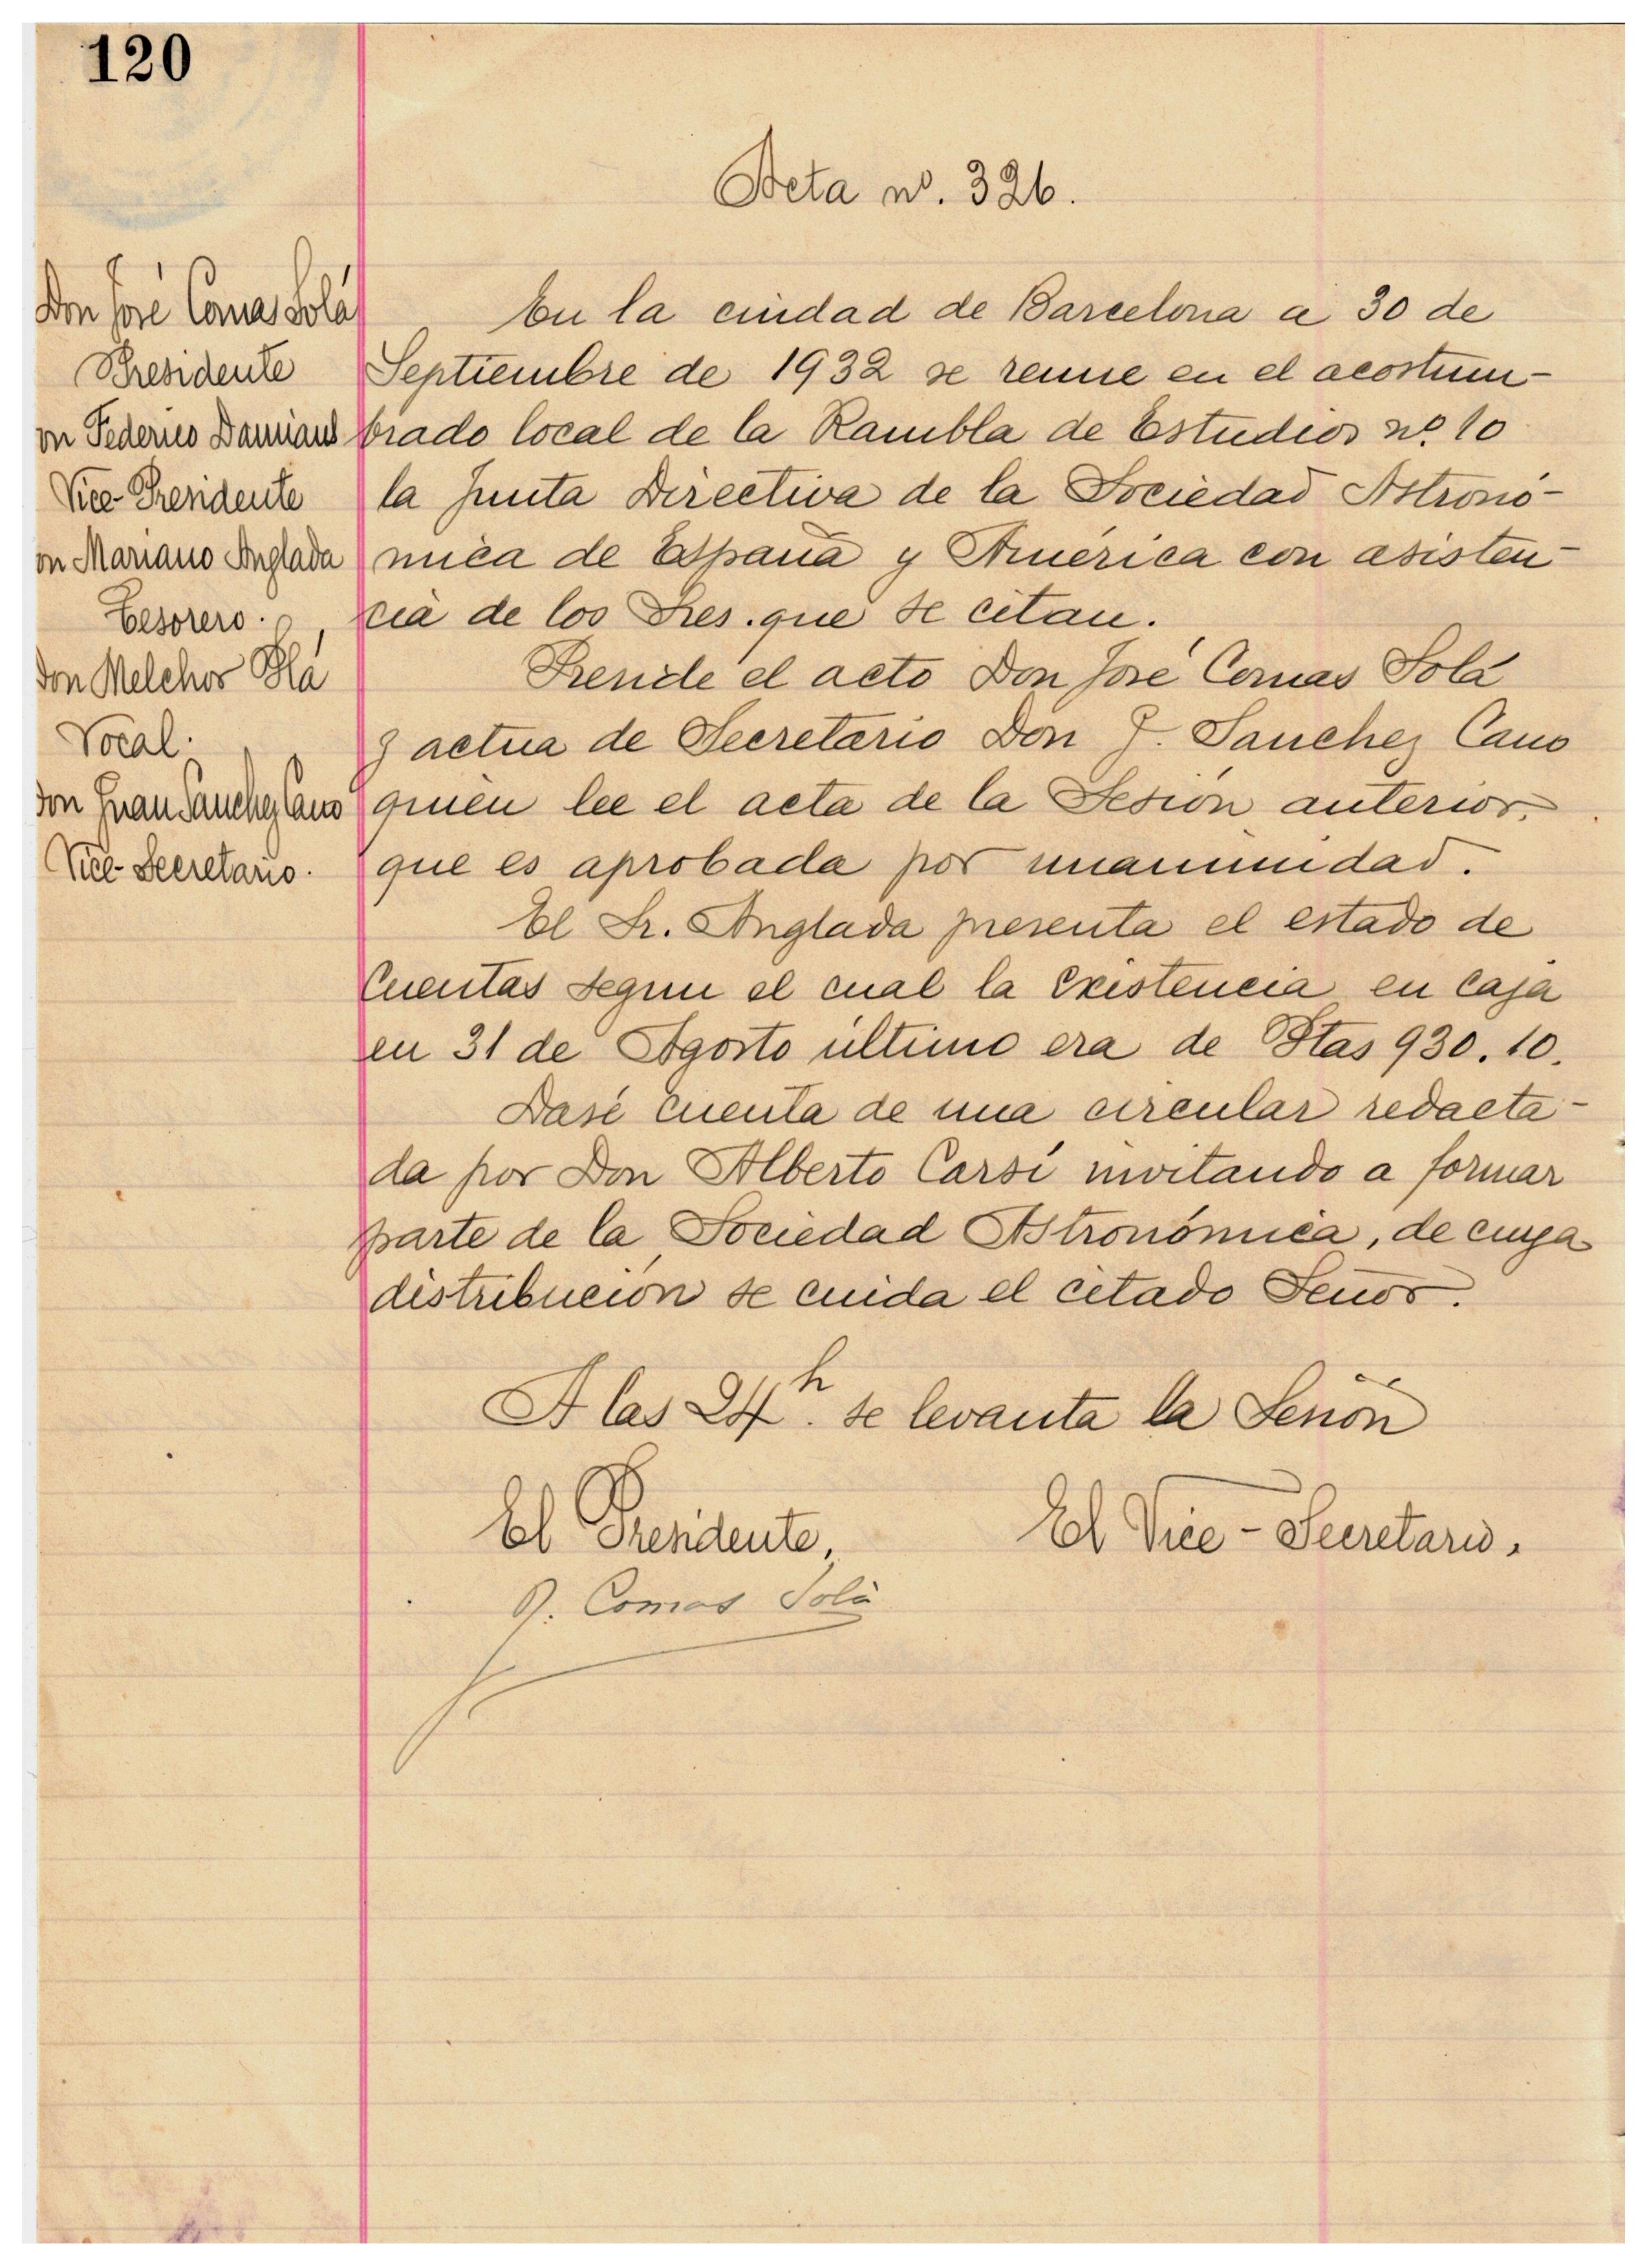 120
Acta nº. 326.
Don José Comas Solá
Presidente
on Federico Damians
Vice-Presidente
on Mariano Anglada
Tesorero.
Don Melchor Plá
Vocal.
Don Juan Sanchez Cano
Vice-Secretario.
En la ciudad de Barcelona a 30 de
Septiembre de 1932 se reune en el acostum-
brado local de la Rambla de Estudios nº 10
la Junta Directiva de la Sociedad Astronó-
mica de España y América con asisten-
cia de los Sres. que se citan.
Preside el acto Don José Comas Solá
y actua de Secretario Don J. Sanchez Cano
quien lee el acta de la Sesión anterior,
que es aprobada por unanimidad.
El Sr. Anglada presenta el estado de
Cuentas segun el cual la existencia en caja
en 31 de Agosto último era de Ptas 930.10.
Dase cuenta de una circular redacta-
da por Don Alberto Carsí invitando a formar
parte de la Sociedad Astronómica, de cuya
distribución se cuida el citado Señor.
A las 24h. se levanta la Sesión
El Presidente,
El Vice-Secretario.
J. Comas Solà